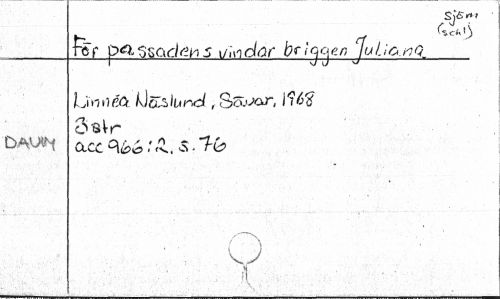 Sjöm
(schl)
För passadens vindar briggen Juliana
Linnéa Näslund, Sävar, 1968
3 str
DAUM acc 966:2, s. 76